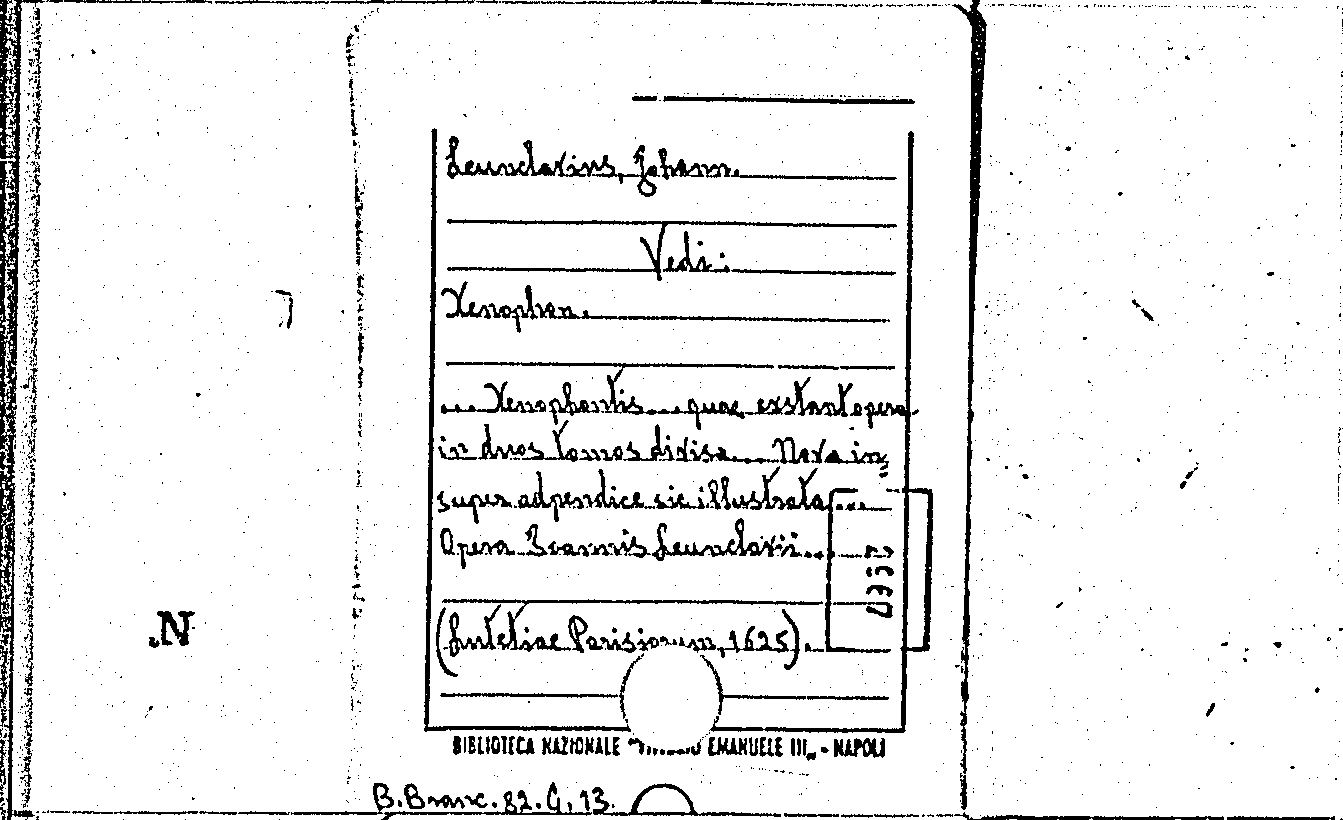 Leunclavius, Johann.
Vedi:
Xenophon.
... Xenophontis ... quae exstant opera
in duos tomos divisa ... Nova in=
super adpendice sic illustrata ...
Opera Ioannis Leunclavii ...
(Lutetiae Parisiorum, 1625).
BIBLIOTECA NAZIONALE "VITTORIO EMANUELE III„ - NAPOLI
B. Branc. 82. G. 13.
N.